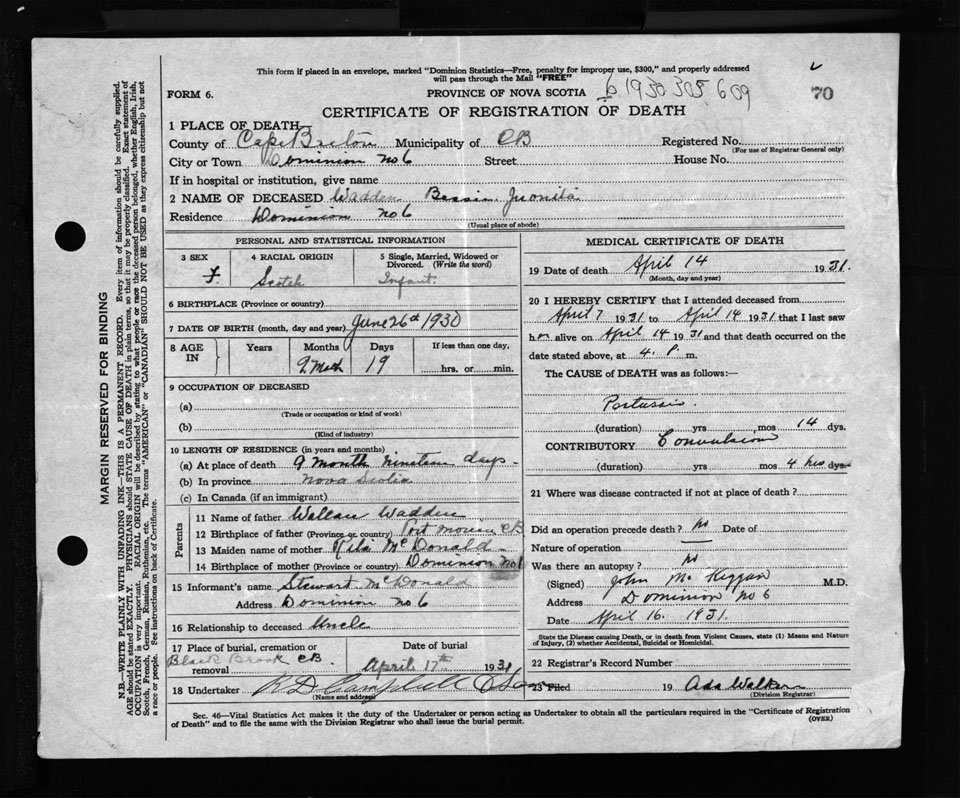 This form if placed in an envelope, marked "Dominion Statistics—Free, penalty for improper use, $300," and properly addressed
will pass through the Mail "FREE"
FORM 6.
PROVINCE OF NOVA SCOTIA
70
CERTIFICATE OF REGISTRATION OF DEATH
1 PLACE OF DEATH—
County of Cape Breton Municipality of CB Registered No.
(For use of Registrar General only)
City or Town Dominion No 6 Street House No.
If in hospital or institution, give name
2 NAME OF DECEASED Wadden Bessie Juonita
Residence Dominion No 6
(Usual place of abode)
PERSONAL AND STATISTICAL INFORMATION
3 SEX 4 RACIAL ORIGIN 5 Single, Married, Widowed or Divorced. (Write the word)
f. Scotch Infant.
6 BIRTHPLACE (Province or country)
7 DATE OF BIRTH (month, day and year) June 26th 1930
8 AGE IN Years Months Days If less than one day,
9 Moth 19 hrs. or min.
9 OCCUPATION OF DECEASED
(a)
(Trade or occupation or kind of work)
(b)
(Kind of industry)
10 LENGTH OF RESIDENCE (in years and months)
(a) At place of death 9 month nineteen days
(b) In province Nova Scotia
(c) In Canada (if an immigrant)
Parents
11 Name of father Wallace Wadden
12 Birthplace of father (Province or country) Port Morien CB
13 Maiden name of mother Rita McDonald
14 Birthplace of mother (Province or country) Dominion No 1
15 Informant's name Stewart McDonald
Address Dominion No 6
16 Relationship to deceased Uncle
17 Place of burial, cremation or removal Black Brook CB
Date of burial
April 17th 1931
18 Undertaker Campbell & Son
(Name and address)
MEDICAL CERTIFICATE OF DEATH
19 Date of death April 14 1931.
(Month, day and year)
20 I HEREBY CERTIFY that I attended deceased from
April 7 1931 to April 14 1931 that I last saw
her alive on April 14 1931 and that death occurred on the
date stated above, at 4. P. m.
The CAUSE of DEATH was as follows:—
Pertussis.
(duration) yrs mos 14 dys.
CONTRIBUTORY Convulsions
(duration) yrs mos 4 hrs dys.
21 Where was disease contracted if not at place of death?
Did an operation precede death? No Date of
Nature of operation
Was there an autopsy? No
(Signed) John McKeggan M.D.
Address Dominion No 6
Date April 16. 1931.
State the Disease causing Death, or in death from Violent Causes, state (1) Means and Nature
of Injury, (2) whether Accidental, Suicidal or Homicidal.
22 Registrar's Record Number
23 Filed 19 Ada Walker
(Division Registrar)
Sec. 46—Vital Statistics Act makes it the duty of the Undertaker or person acting as Undertaker to obtain all the particulars required in the "Certificate of Registration
of Death" and to file the same with the Division Registrar who shall issue the burial permit. (OVER)
MARGIN RESERVED FOR BINDING
N.B.—WRITE PLAINLY WITH UNFADING INK—THIS IS A PERMANENT RECORD. Every item of information should be carefully supplied.
AGE should be stated EXACTLY. PHYSICIANS should STATE CAUSE OF DEATH in plain terms, so that it may be properly classified. Exact statement of
OCCUPATION is very important. RACIAL ORIGIN will be described by stating to what people or race the deceased person belonged, whether English, Irish,
Scotch, French, German, Russian, Ruthenian, etc. The terms "AMERICAN" or "CANADIAN" SHOULD NOT BE USED as they express citizenship but not
a race or people. See instructions on back of Certificate.